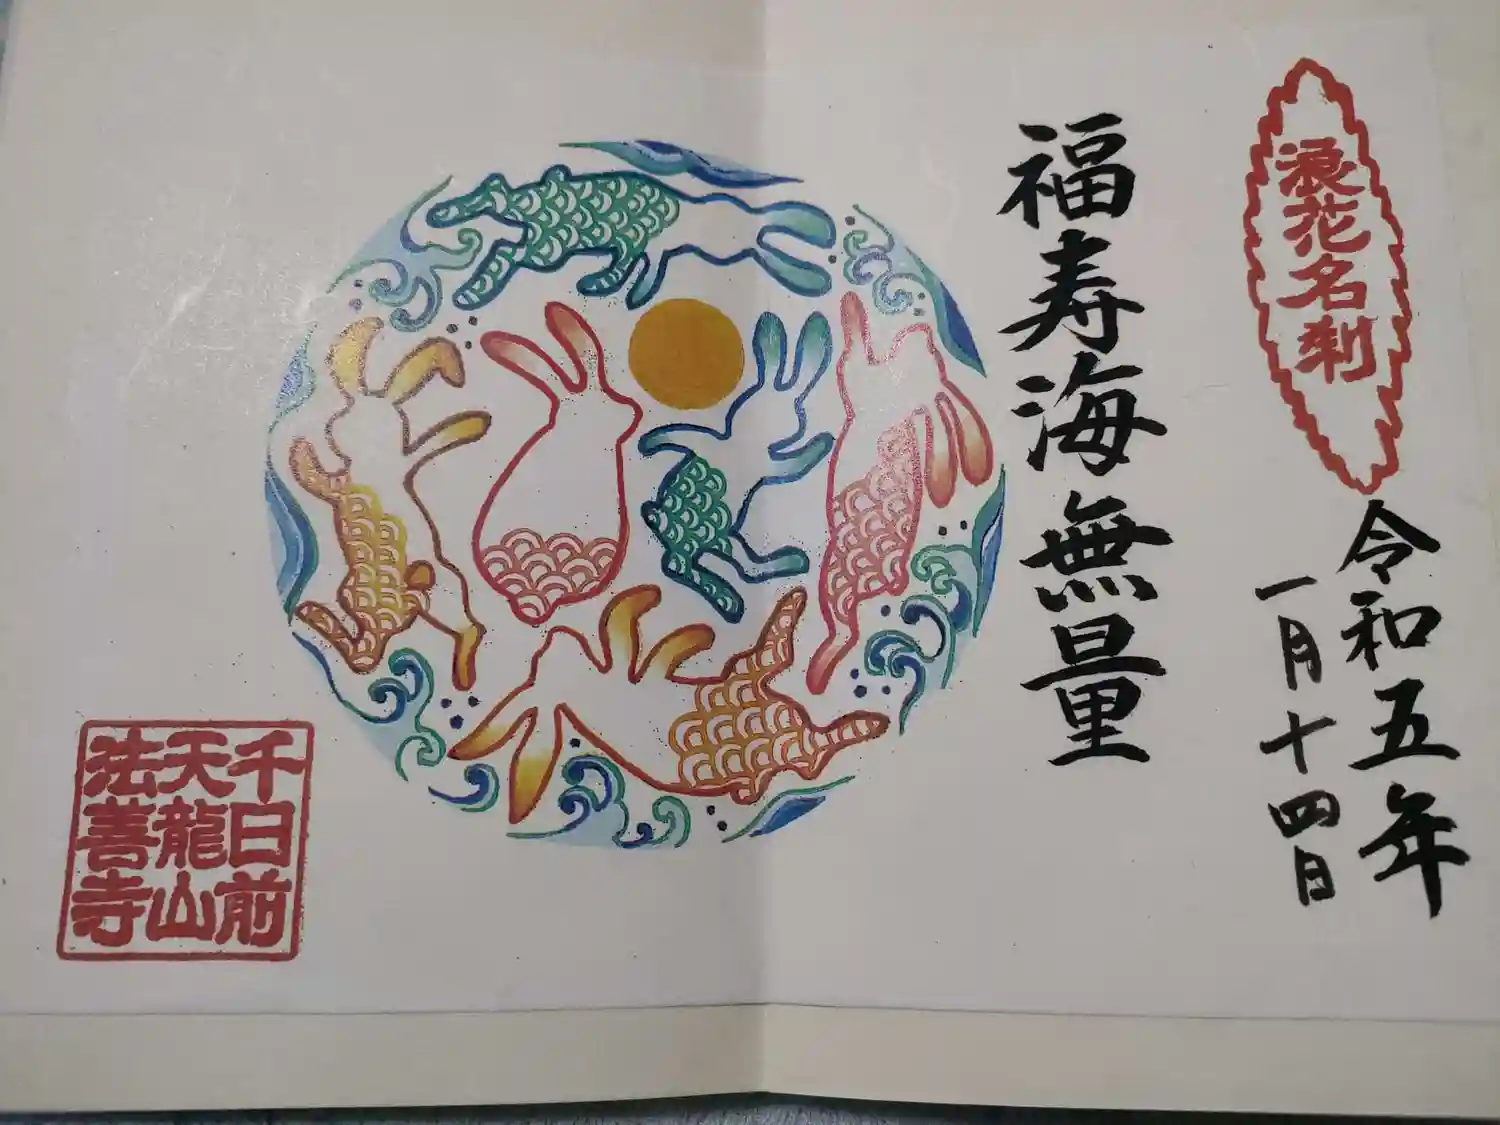 浪花名刹
令和五年
一月十四日
福寿海無量
千日前
天龍山
法善寺